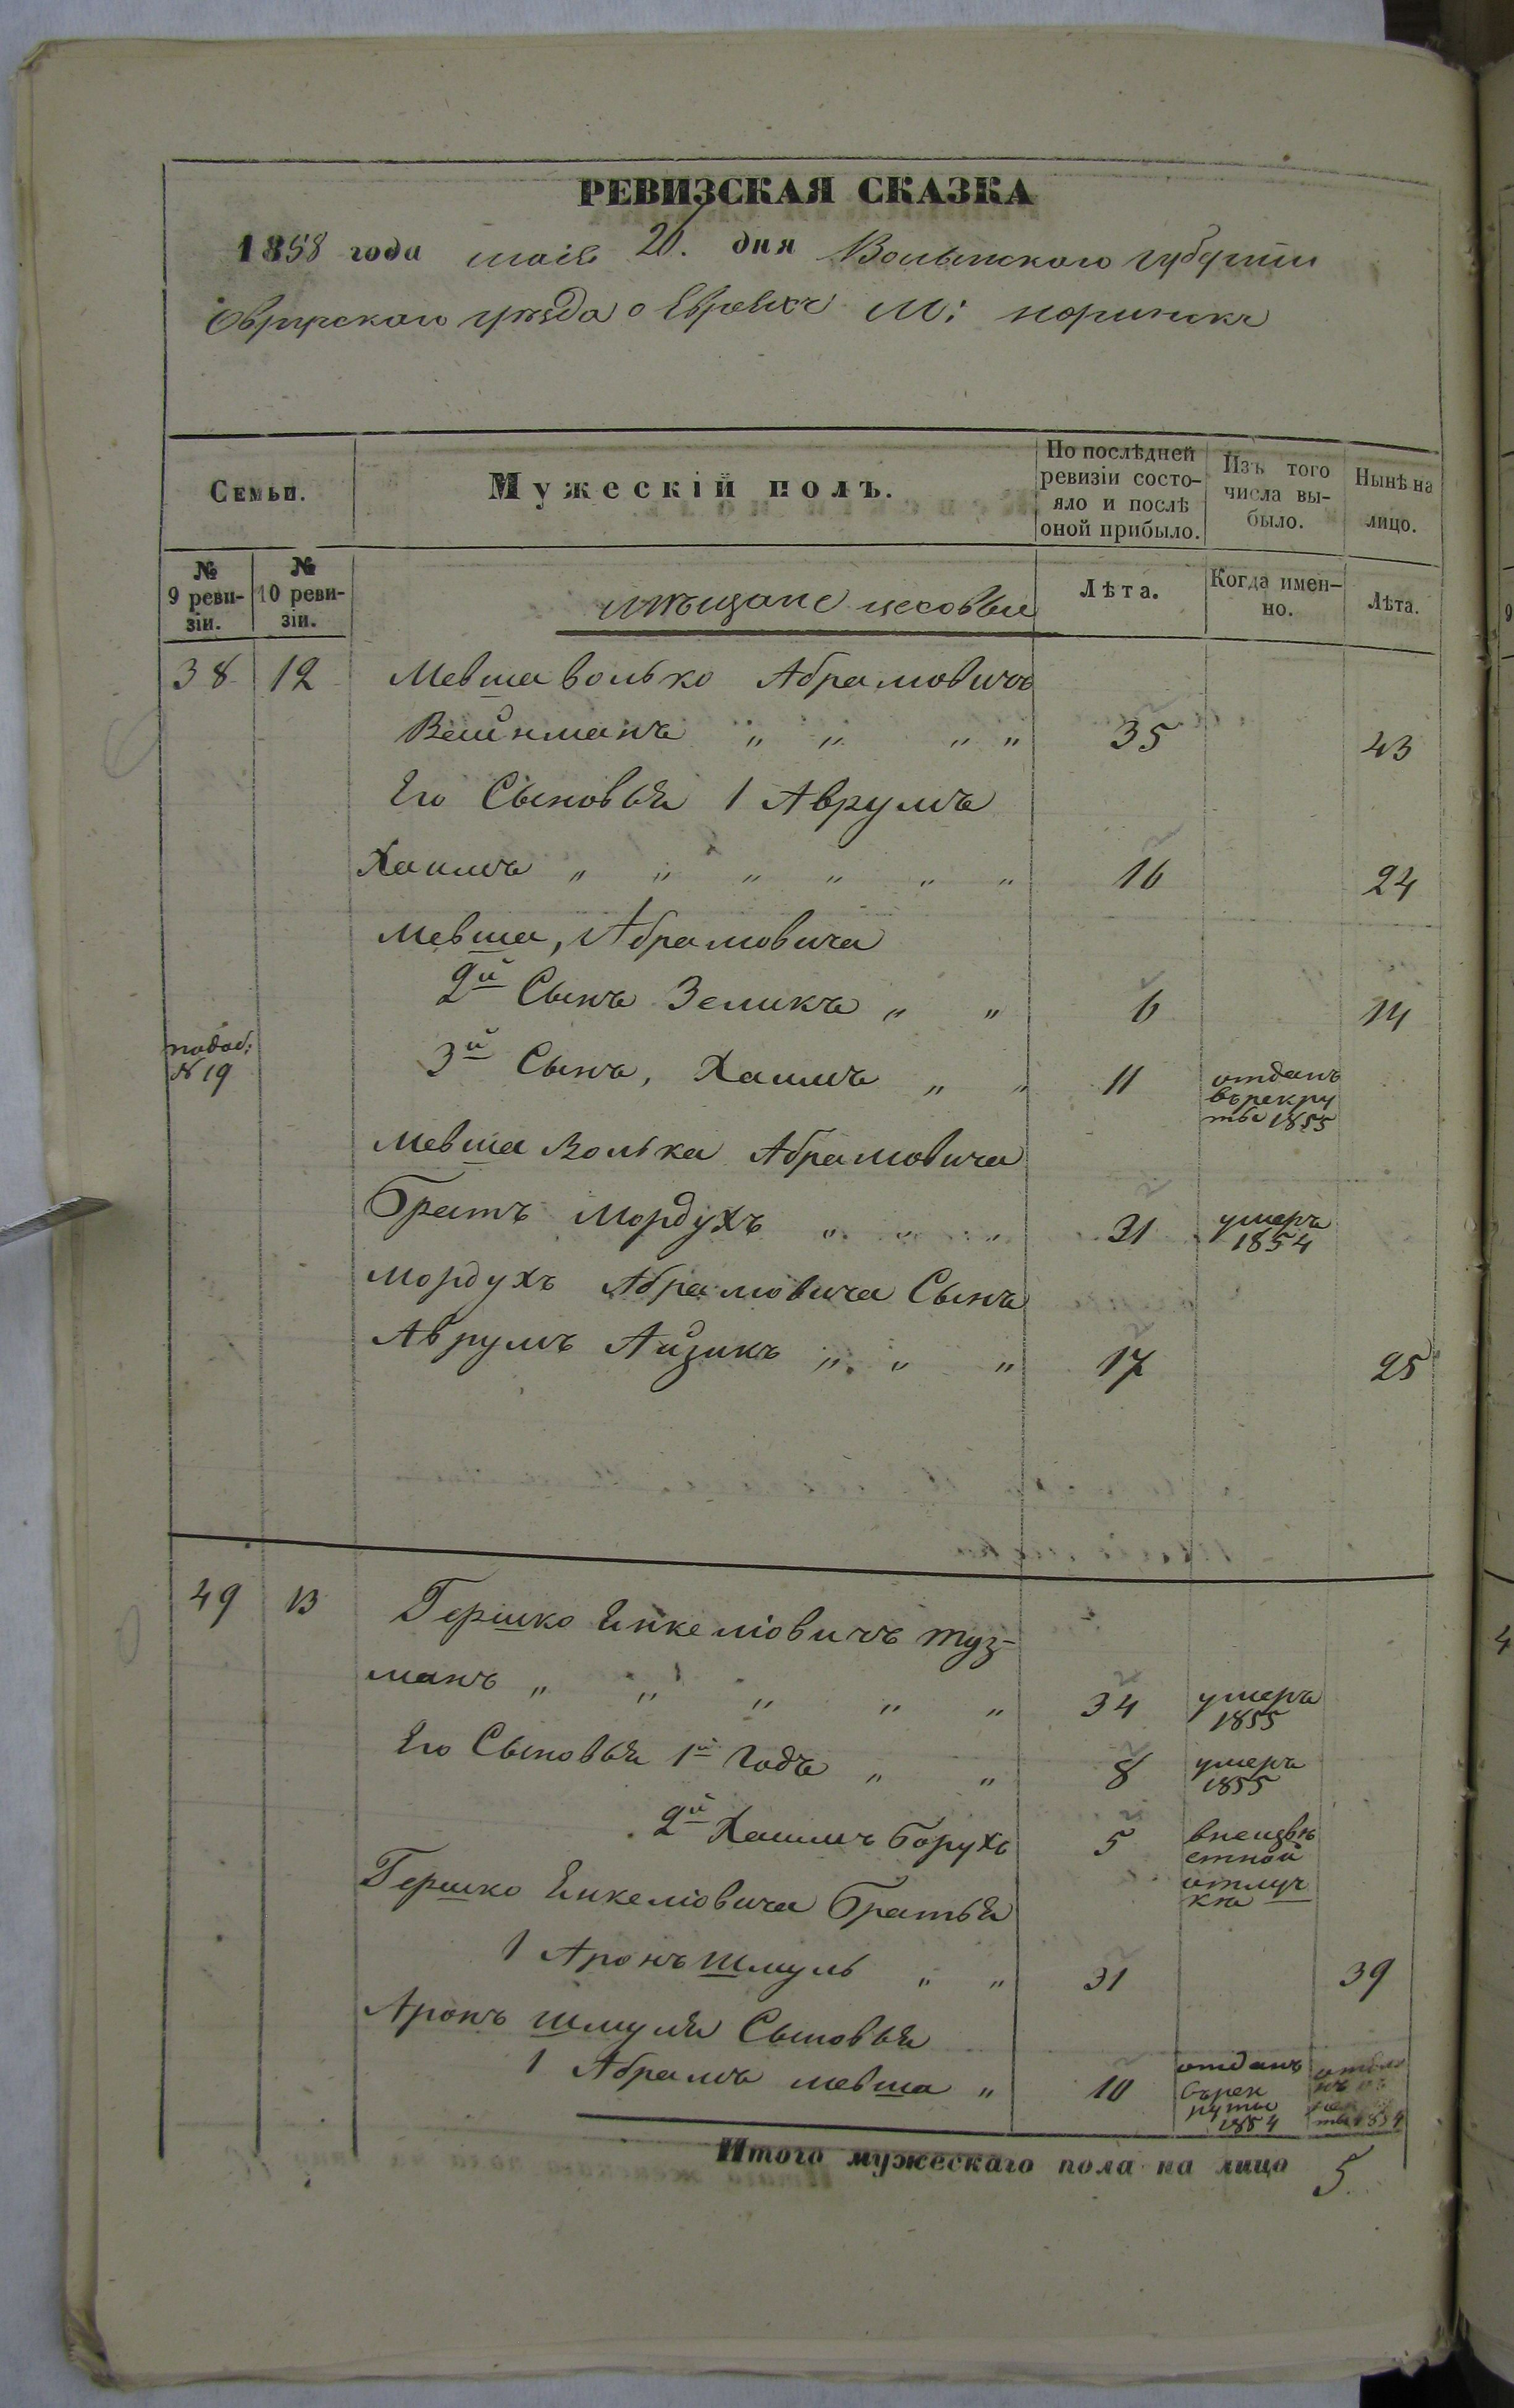 РЕВИЗСКАЯ СКАЗКА
1858 года маія 20. дня Волынского губерніи
Овручского уѣзда о Евреяхъ М: норинскъ
Семьи.
Мужескій полъ.
По послѣдней ревизіи состо-
яло и послѣ
оной прибыло.
Изъ того
числа вы-
было.
Нынѣ на
лицо.
№
9 реви-
зіи.
№
10 реви-
зіи.
мѣщане цеховые
Лѣта.
Когда имен-
но.
Лѣта.
38 12 Мевша волько Абрамовичъ
Вейнманъ „ „ „ „ 35 43
Его Сыновья 1 Аврумъ
Хаимъ „ „ „ „ „ „ 16 24
Мевша, Абрамовича
2й Сынъ Зеликъ „ „ 6 14
3й Сынъ, Хаимъ „ „ 11 отданъ
въ рекру
ты 1855
№ 19
Мевша Волька Абрамовича
Братъ Мордухъ „ „ „ 31 умеръ
1854
Мордухъ Абрамовича Сынъ
Аврумъ Айзикъ „ „ „ 17 25
49 13 Гершко Енкеліовичъ туз-
манъ „ „ „ „ „ 34 умеръ
1855
Его Сыновья 1й Годъ „ „ 8 умеръ
1855
2й Хаимъ Борухъ 5 внеизвѣ
стной
отлуч
кѣ
Гершко Енкеліовича Братья
1 Аронъ шмуль „ „ 31 39
Аронъ шмуля Сыновья
1 Абрамъ мевша „ 10 отданъ
въ рек
руты
1854
Итого мужескаго пола на лицо 5.